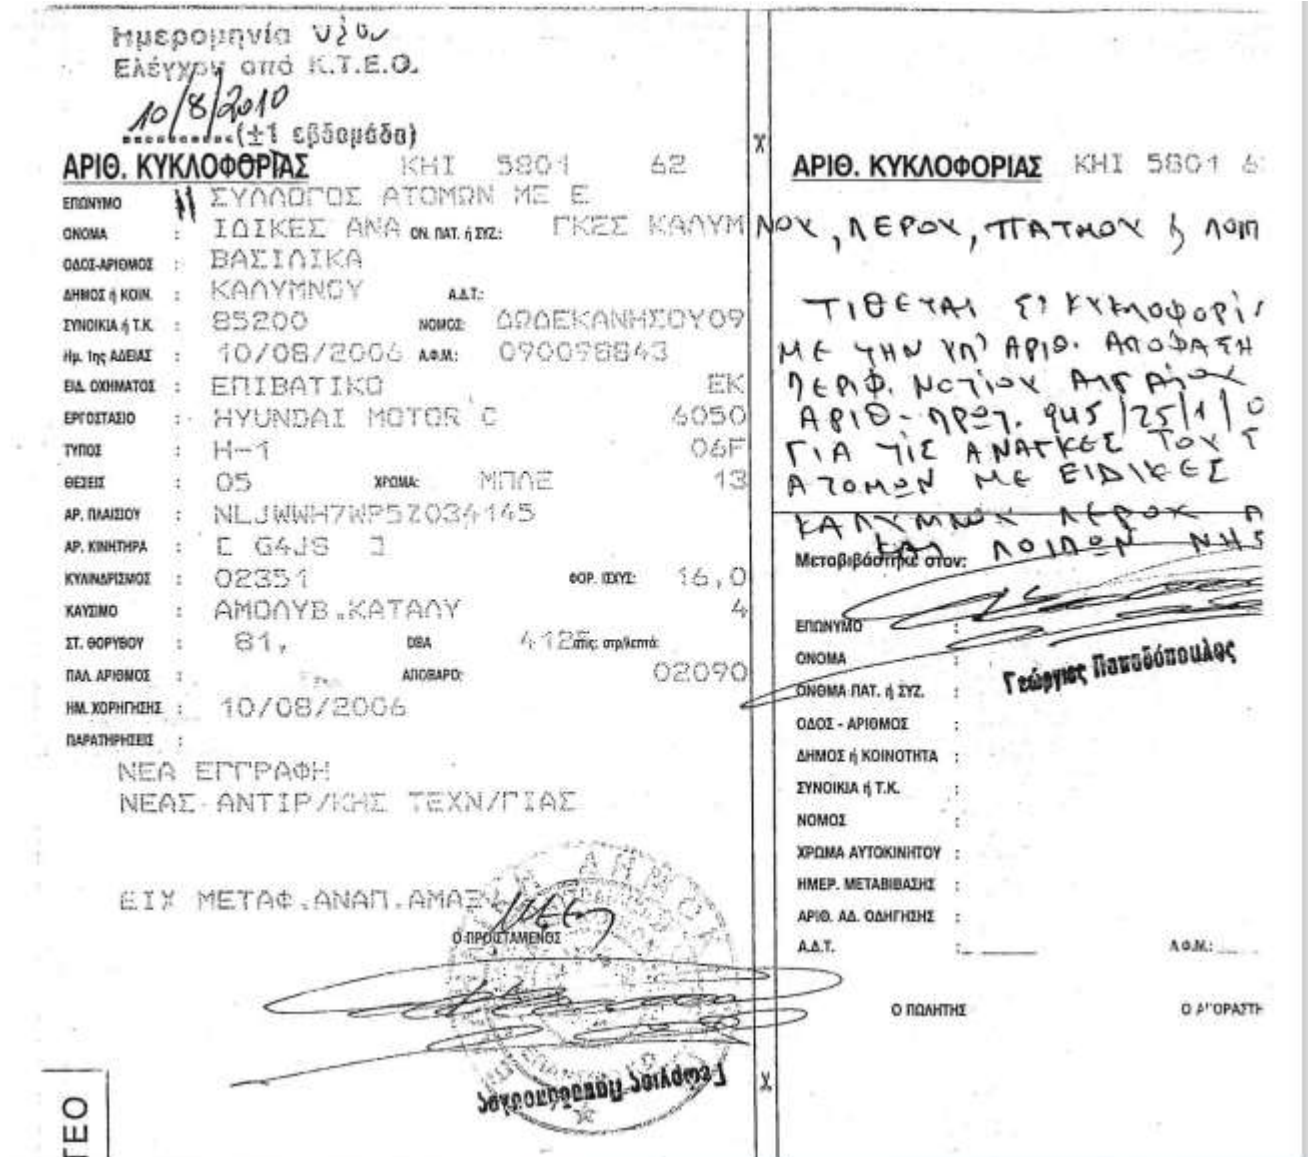 Ημερομηνία
Ελέγχου από Κ.Τ.Ε.Ο.
10/8/2010
(±1 εβδομάδα)
ΑΡΙΘ. ΚΥΚΛΟΦΟΡΙΑΣ ΚΗΙ 5801 62
ΕΠΩΝΥΜΟ ΣΥΛΛΟΓΟΣ ΑΤΟΜΩΝ ΜΕ Ε
ΟΝΟΜΑ : ΙΔΙΚΕΣ ΑΝΑ ΟΝ. ΠΑΤ. ή ΣΥΖ.: ΓΚΕΣ ΚΑΛΥΜ
ΟΔΟΣ-ΑΡΙΘΜΟΣ : ΒΑΣΙΛΙΚΑ
ΔΗΜΟΣ ή ΚΟΙΝ. : ΚΑΛΥΜΝΟΥ Α.Δ.Τ.:
ΣΥΝΟΙΚΙΑ ή Τ.Κ. : 85200 ΝΟΜΟΣ: ΔΩΔΕΚΑΝΗΣΟΥ09
Ημ. 1ης ΑΔΕΙΑΣ : 10/08/2006 Α.Φ.Μ.: 090098843
ΕΙΔ. ΟΧΗΜΑΤΟΣ : ΕΠΙΒΑΤΙΚΟ ΕΚ
ΕΡΓΟΣΤΑΣΙΟ : HYUNDAI MOTOR C 6050
ΤΥΠΟΣ : H-1 06F
ΘΕΣΕΙΣ : 05 ΧΡΩΜΑ: ΜΠΛΕ 13
ΑΡ. ΠΛΑΙΣΙΟΥ : NLJWWH7WP5Z034145
ΑΡ. ΚΙΝΗΤΗΡΑ : [ G4JS ]
ΚΥΛΙΝΔΡΙΣΜΟΣ : 02351 ΦΟΡ. ΙΣΧΥΣ: 16,0
ΚΑΥΣΙΜΟ : ΑΜΟΛΥΒ.ΚΑΤΑΛΥ 4
ΣΤ. ΘΟΡΥΒΟΥ : 81, DBA 4125 στις: στρ/λεπτό:
ΠΑΛ. ΑΡΙΘΜΟΣ : ΑΠΟΒΑΡΟ: 02090
ΗΜ. ΧΟΡΗΓΗΣΗΣ : 10/08/2006
ΠΑΡΑΤΗΡΗΣΕΙΣ :
ΝΕΑ ΕΓΓΡΑΦΗ
ΝΕΑΣ ΑΝΤΙΡ/ΚΗΣ ΤΕΧΝ/ΓΙΑΣ
ΕΙΧ ΜΕΤΑΦ.ΑΝΑΠ.ΑΜΑΞ
Ο ΠΡΟΪΣΤΑΜΕΝΟΣ
Γεώργιος Παπαδόπουλος
ΤΕΟ
ΑΡΙΘ. ΚΥΚΛΟΦΟΡΙΑΣ ΚΗΙ 5801 6
ΝΟΥ, ΛΕΡΟΥ, ΠΑΤΜΟΥ & ΛΟΙΠ
ΤΙΘΕΤΑΙ ΣΕ ΚΥΚΛΟΦΟΡΙ
ΜΕ ΤΗΝ ΥΠ' ΑΡΙΘ. ΑΠΟΦΑΣΗ
ΠΕΡΙΦ. ΝΟΤΙΟΥ ΑΙΓΑΙΟΥ
ΑΡΙΘ-ΠΡΩΤ. 945/25/1/0
ΓΙΑ ΤΙΣ ΑΝΑΓΚΕΣ ΤΟΥ Σ
ΑΤΟΜΩΝ ΜΕ ΕΙΔΙΚΕΣ
ΚΑΛΥΜΝΟΥ ΛΕΡΟΥ
ΚΑΙ ΛΟΙΠΩΝ ΝΗΣ
Μεταβιβάστηκε στον:
ΕΠΩΝΥΜΟ :
ΟΝΟΜΑ :
Γεώργιος Παπαδόπουλος
ΟΝΟΜΑ ΠΑΤ. ή ΣΥΖ. :
ΟΔΟΣ - ΑΡΙΘΜΟΣ :
ΔΗΜΟΣ ή ΚΟΙΝΟΤΗΤΑ :
ΣΥΝΟΙΚΙΑ ή Τ.Κ. :
ΝΟΜΟΣ :
ΧΡΩΜΑ ΑΥΤΟΚΙΝΗΤΟΥ :
ΗΜΕΡ. ΜΕΤΑΒΙΒΑΣΗΣ :
ΑΡΙΘ. ΑΔ. ΟΔΗΓΗΣΗΣ :
Α.Δ.Τ. : Α.Φ.Μ.:
Ο ΠΩΛΗΤΗΣ Ο ΑΓΟΡΑΣΤΗ